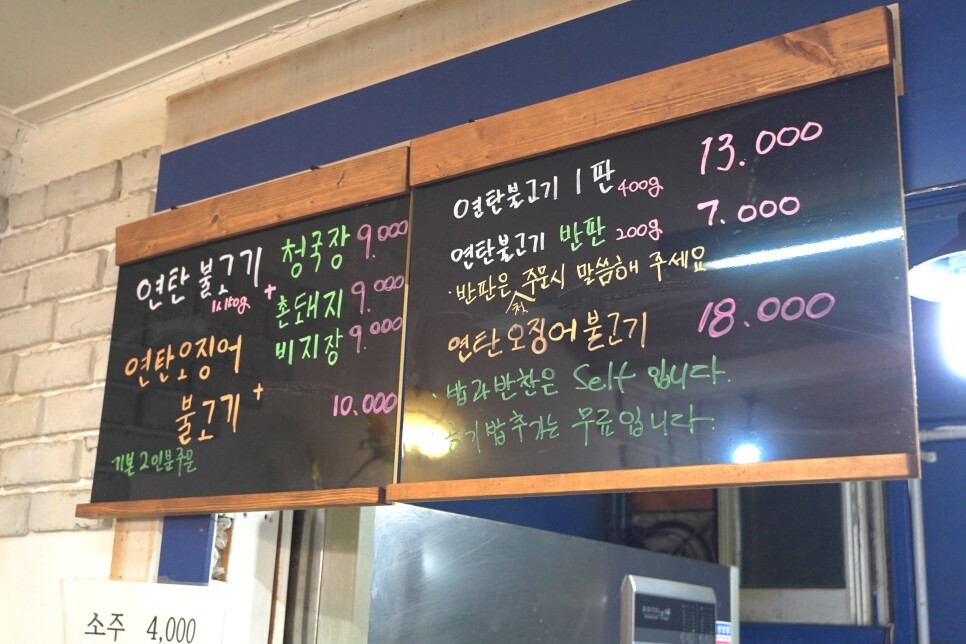 연탄 불고기 + 청국장 9.000
1人150g 촌돼지 9.000
비지장 9.000
연탄오징어
불고기 + 10.000
기본 2인분 주문
연탄불고기 1판 400g 13.000
연탄불고기 반판 200g 7.000
·반판은 첫 주문시 말씀해 주세요
연탄오징어불고기 18.000
· 밥과 반찬은 Self 입니다.
· 공기밥추가는 무료입니다.
소주 4,000